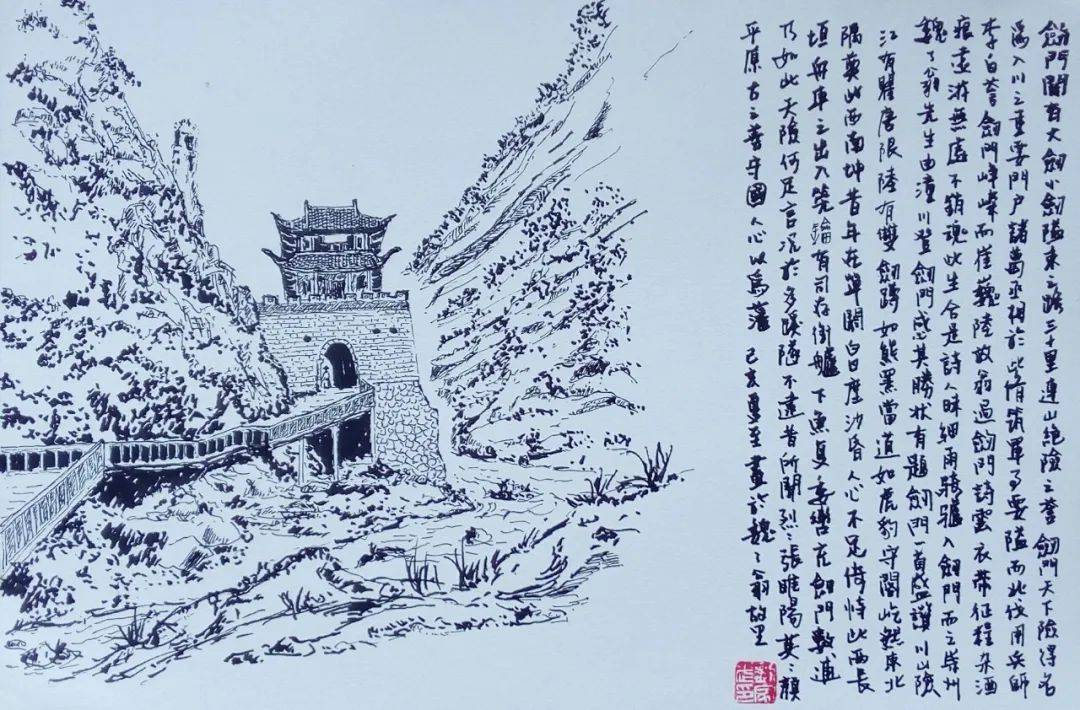 劍門關有大劍小劍隘東之路三十里連山絶險之誉劍門天下險得名
為入川之重要門户諸葛丞相於此脩築軍事要隘而北伐用兵師
李白誉劍門峥嶸而崔巍陸放翁過劍門詩雲衣带征程杂酒
痕遠游無處不銷魂此生合是詩人昧細雨騎驢入劍門而之崇州
魏了翁先生由潼川登劍門感其勝状有題劍門一首盛讚川山險
江有瞿唐限陸有雙劍蹲如熊羆當道如虎豹守閽屹然東北
隅莫此西南坤昔年在單閼白日塵沙昏人心不足倚恃此西長
垣舟車之出入筦鑰有司存衡艫下魚复委轡克劍門數逋
乃如此天險何足言况於多蹊隧不遠昔所聞烈々張睢陽英々顔
平原古之善守國人心以爲藩 己亥夏至畫於魏了翁故里